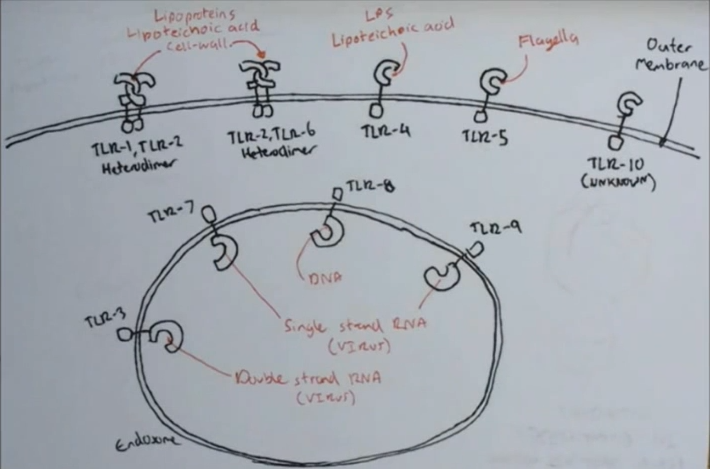 Lipoproteins
Lipoteichoic acid
Cell-wall
LPS
Lipoteichoic acid
Flagella
Outer
Membrane
TLR-1, TLR-2
Heterodimer
TLR-2, TLR-6
Heterodimer
TLR-4
TLR-5
TLR-10
(UNKNOWN)
TLR-7
TLR-8
TLR-9
DNA
TLR-3
Single strand RNA
(VIRUS)
Double strand RNA
(VIRUS)
Endosome